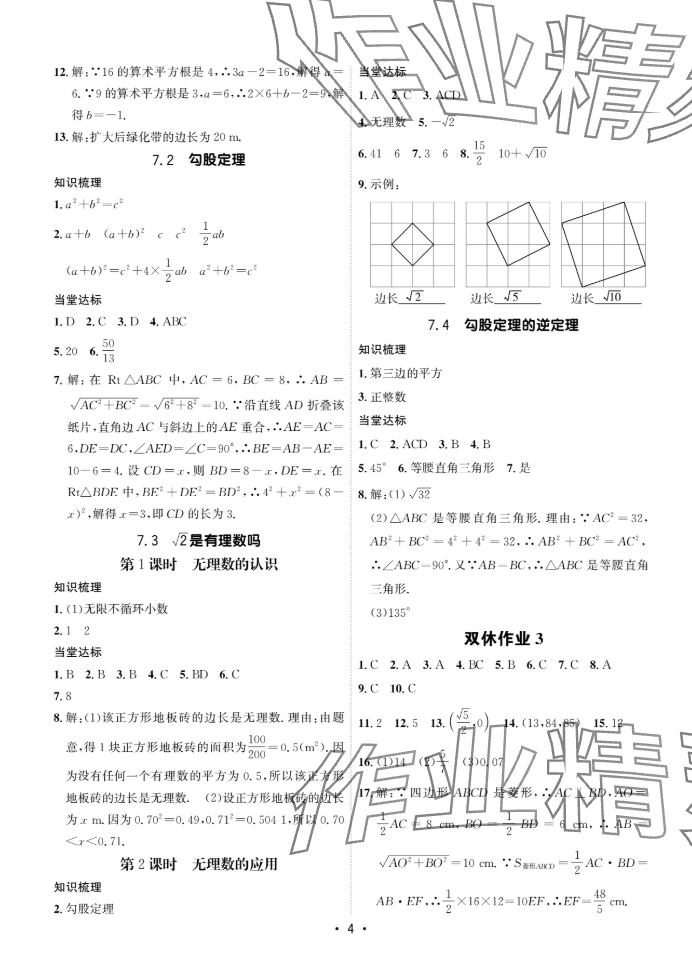 12. 解:∵16 的算术平方根是 4,∴3a-2=16,解得 a=
6. ∵9 的算术平方根是 3,a=6,∴2×6+b-2=9,解
得 b=-1.
13. 解:扩大后绿化带的边长为 20 m.
7.2 勾股定理
知识梳理
1. a²+b²=c²
2. a+b (a+b)² c c² 1/2 ab
(a+b)²=c²+4×1/2 ab a²+b²=c²
当堂达标
1. D 2. C 3. D 4. ABC
5. 20 6. 50/13
7. 解:在 Rt△ABC 中,AC=6,BC=8,∴AB=
√(AC²+BC²)=√(6²+8²)=10. ∵沿直线 AD 折叠该
纸片,直角边 AC 与斜边上的AE 重合,∴AE=AC=
6,DE=DC,∠AED=∠C=90°,∴BE=AB-AE=
10-6=4. 设 CD=x,则 BD=8-x,DE=x. 在
Rt△BDE 中,BE²+DE²=BD²,∴4²+x²=(8-
x)²,解得 x=3,即 CD 的长为 3.
7.3 √2是有理数吗
第1课时 无理数的认识
知识梳理
1. (1)无限不循环小数
2. 1 2
当堂达标
1. B 2. B 3. B 4. C 5. BD 6. C
7. 8
8. 解:(1)该正方形地板砖的边长是无理数. 理由:由题
意,得 1 块正方形地板砖的面积为 100/200=0.5(m²). 因
为没有任何一个有理数的平方为 0.5,所以该正方形
地板砖的边长是无理数. (2)设正方形地板砖的边长
为 x m. 因为 0.70²=0.49,0.71²=0.504 1,所以 0.70
<x<0.71.
第2课时 无理数的应用
知识梳理
2. 勾股定理
当堂达标
1. A 2. C 3. ACD
4. 无理数 5. -√2
6. 41 6 7. 3 6 8. 15/2 10+√10
9. 示例:
边长 √2 边长 √5 边长 √10
7.4 勾股定理的逆定理
知识梳理
1. 第三边的平方
3. 正整数
当堂达标
1. C 2. ACD 3. B 4. B
5. 45° 6. 等腰直角三角形 7. 是
8. 解:(1)√32
(2)△ABC 是等腰直角三角形. 理由:∵AC²=32,
AB²+BC²=4²+4²=32,∴AB²+BC²=AC²,
∴∠ABC=90°. 又∵AB=BC,∴△ABC 是等腰直角
三角形.
(3)135°
双休作业3
1. C 2. A 3. A 4. BC 5. B 6. C 7. C 8. A
9. C 10. C
11. 2 12. 5 13. (√5/2,0) 14. (13,84,85) 15. 12
16. (1)14 (2)5/7 (3)0.07
17. 解:∵四边形 ABCD 是菱形,∴AC⊥BD,AO=
1/2 AC=8 cm,BO=1/2 BD=6 cm,∴AB=
√(AO²+BO²)=10 cm. ∵S菱形ABCD=1/2 AC·BD=
AB·EF,∴1/2×16×12=10EF,∴EF=48/5 cm.
· 4 ·
作业精
作业精